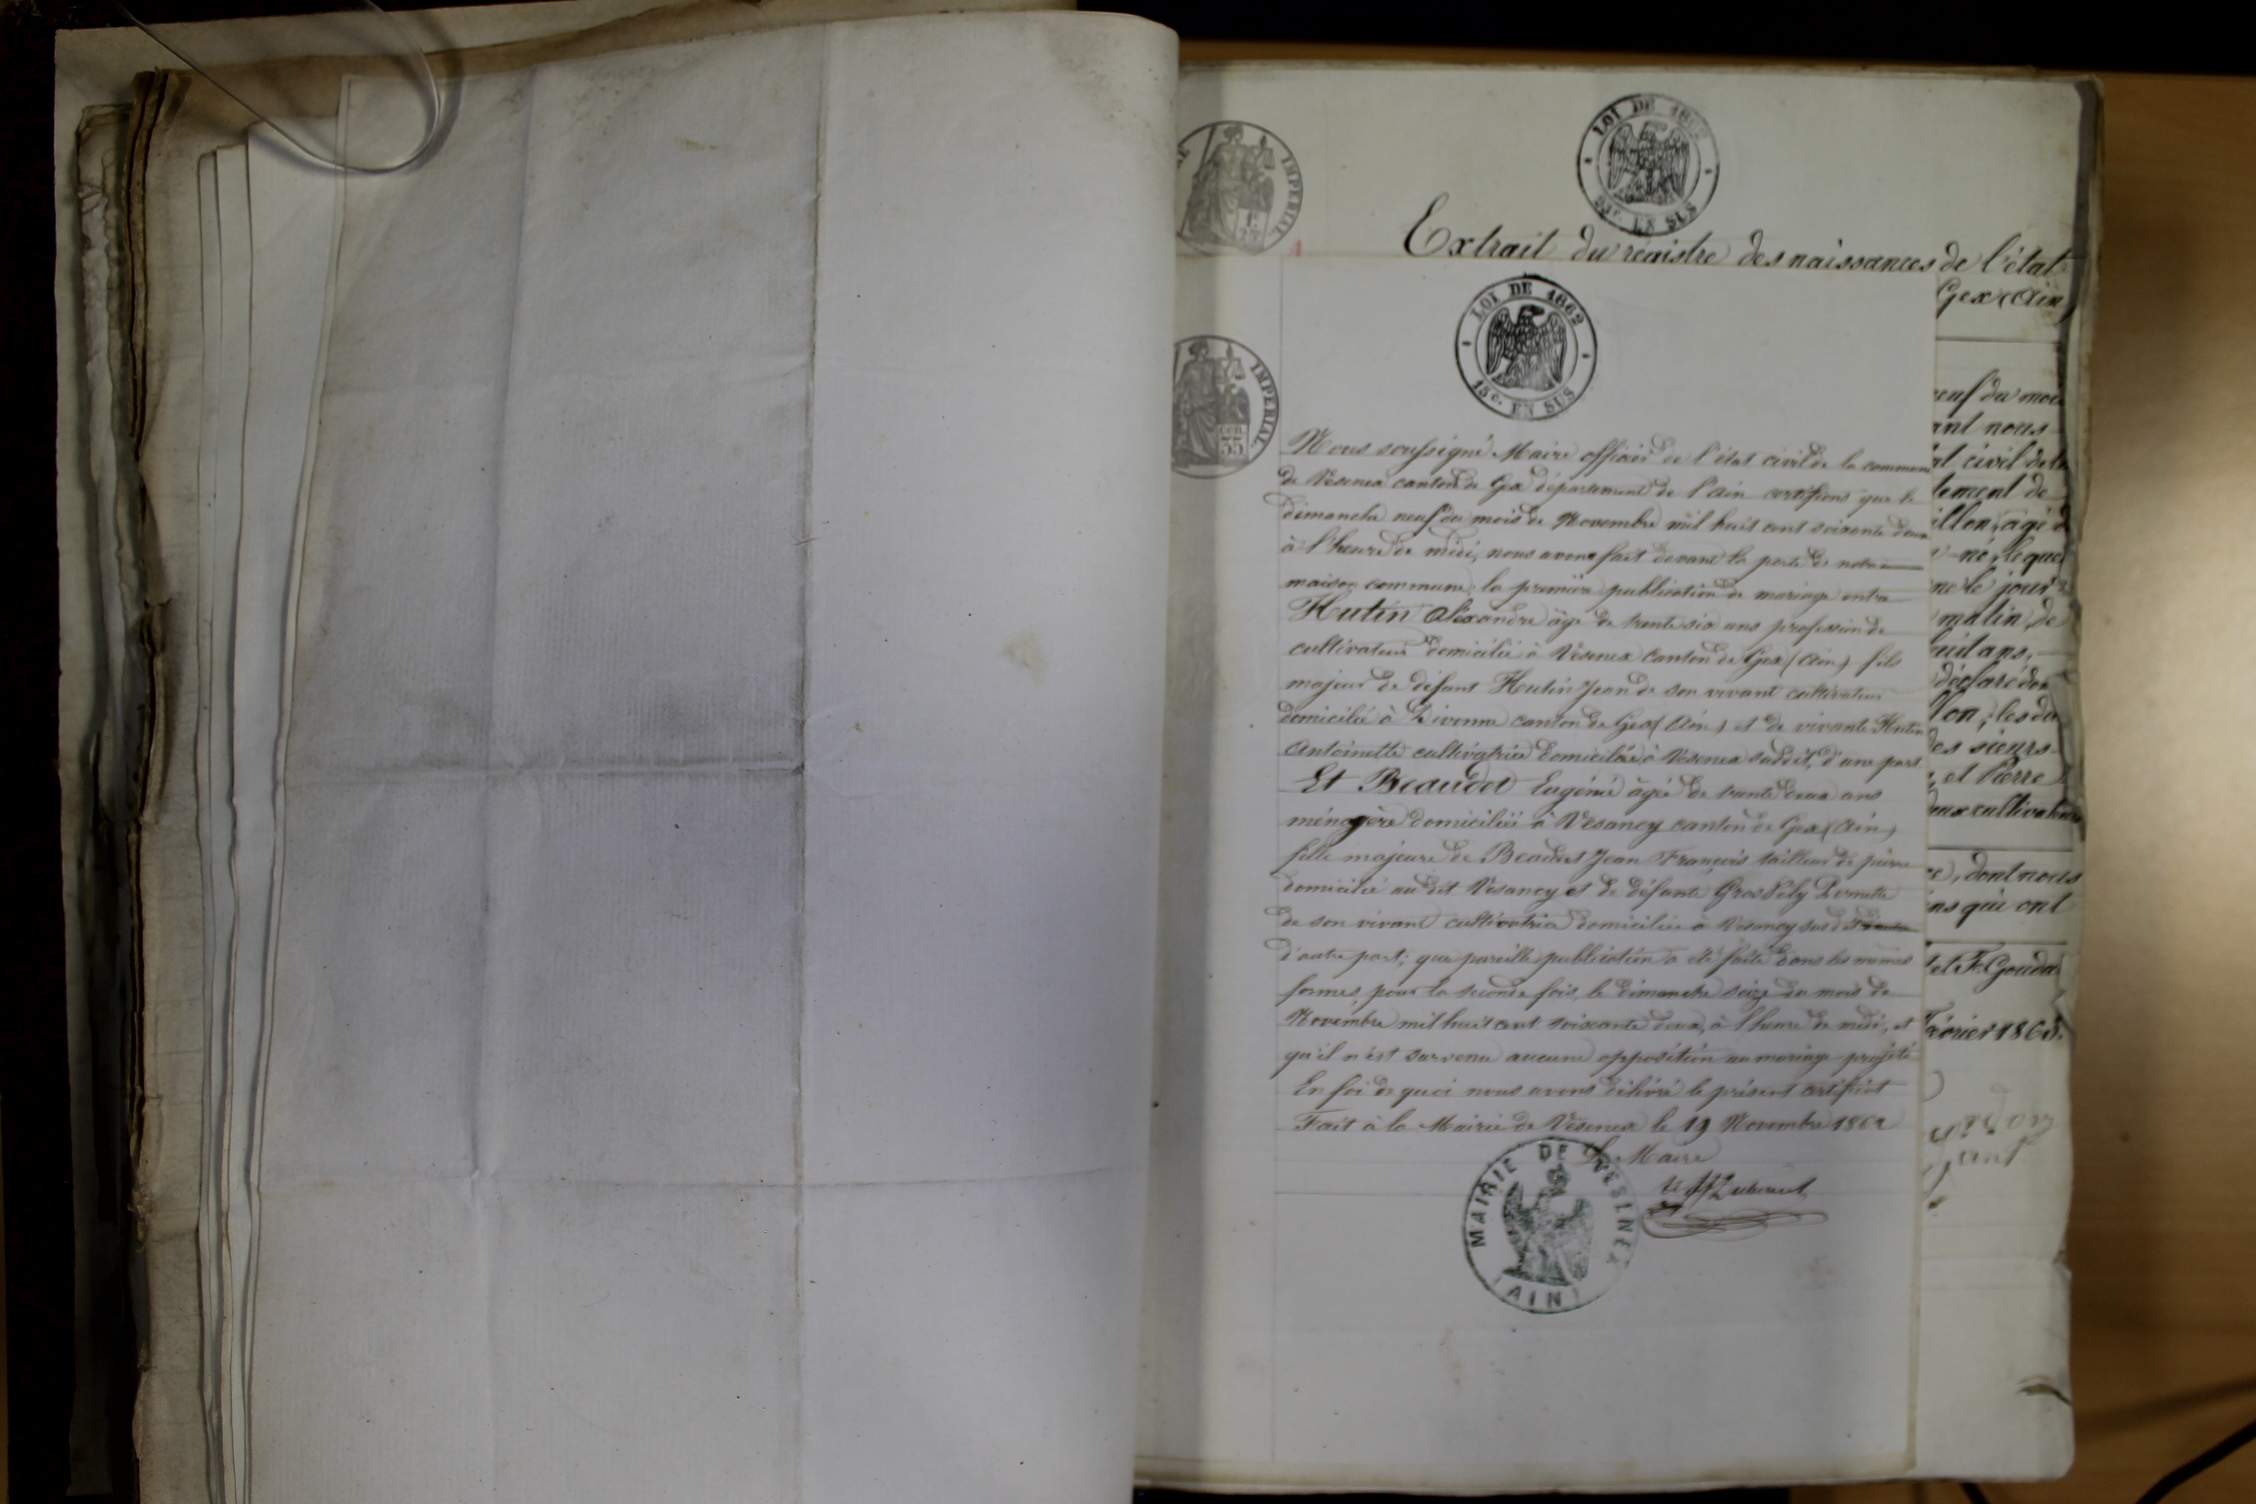 IMPERIAL
LOI DE 1862
EN SUS
Extrait du registre des naissances de l'état
Gex (Ain)
IMPERIAL
35
LOI DE 1862
15c. EN SUS
Nous soussigné Maire officier de l'état civil de la commune
de Vesenex canton de Gex département de l'Ain certifions que le
dimanche neuf du mois de Novembre mil huit cent soixante deux
à l'heure de midi, nous avons fait devant la porte de notre
maison commune, la première publication de mariage entre
Hutin Alexandre âgé de trente six ans profession de
cultivateur domicilié à Vesenex canton de Gex (Ain) fils
majeur de défunt Hutin Jean de son vivant cultivateur
domicilié à Divonne canton de Gex (Ain) et de vivante Hutin
Antoinette cultivatrice domiciliée à Vesenex susdit, d'une part
Et Beaudet Eugénie âgée de trente deux ans
ménagère domiciliée à Vesancy canton de Gex (Ain)
fille majeure de Beaudet Jean François tailleur de pierre
domicilié au dit Vesancy et de défunte
de son vivant cultivatrice domiciliée à Vesancy susdit
d'autre part; que pareille publication a été faite dans les mêmes
formes, pour la seconde fois, le dimanche seize du mois de
Novembre mil huit cent soixante deux, à l'heure de midi, et
qu'il n'est survenu aucune opposition au mariage projeté
En foi de quoi nous avons délivré le présent certificat
Fait à la Mairie de Vesenex le 19 Novembre 1862
Le Maire
MAIRIE DE VESENEX
(AIN)
neuf du mois
ant nous
at civil de la
tement de
illon, agé
né, lequel
ne le jour
matin, de
huit ans,
déclaré
lon; les
des sieurs
et Pierre
deux cultivateurs
dont nous
ns qui ont
1863